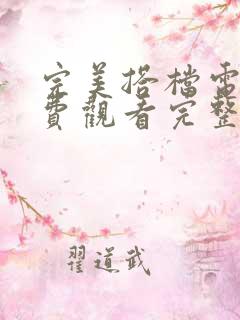 完美搭檔電
費觀看完整
翟道武